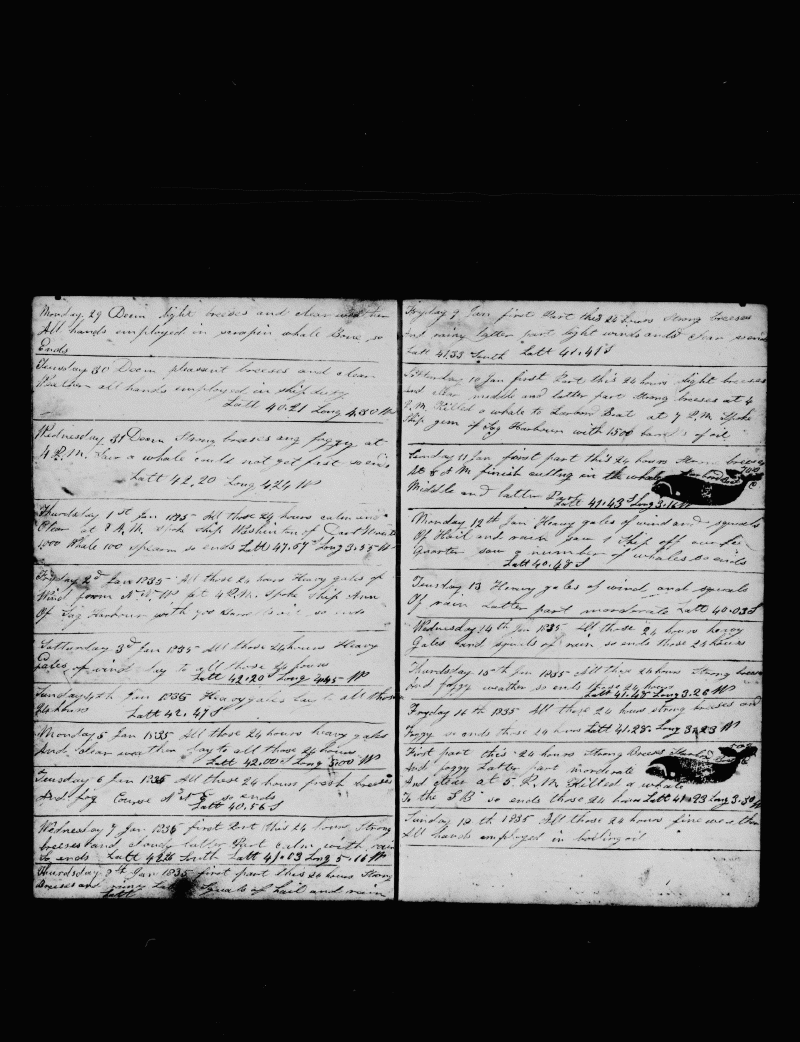 Monday 29 Decm light breeses and clear weather
All hands employed in scrapin whale Bone so
Ends
Teusday 30 Decm pleasant breeses and clear
Weather all hands employed in ship duty
Latt 40.21 Long 4.50 W
Wednesday 31 Decm Strong breeses and foggy at
4 P.M. Saw a whale could not get fast so ends
Latt 42.20 Long 4.24 W
Thursday 1st Jan 1835 All those 24 hours calm and
Clear at 8 A.M. Spok ship Washinton of
1000 Whale 100 Sperm so ends Latt 47.57 Long 3.55 W
Fryday 2d Jan 1835 All those 24 hours Heavy gales of
Wind from N.W. at 4 P.M. Spoke Ship Ann
Of Sag Harbour with 700 so ends
Satturday 3d Jan 1835 All those 24 hours Heavy
Gales of wind lay to all those 24 hours
Latt 42.20 Long 4.45 W
Sunday 4th Jan 1835 Heavy gales lay to all those
24 hours Latt 42.47 S
Monday 5 Jan 1835 All those 24 hours heavy gales
And clear weather lay to all those 24 hours
Latt 42.00 S Long 5.00 W
Teusday 6 Jan 1835 All these 24 hours fresh breeses
And fog Course N E so ends
Latt 40.56 S
Wednesday 7 Jan 1835 first Part this 24 hours Strong
breeses and latter Part calm with rain
So ends Latt South Latt 41.03 Long 5.16 W
Thursday 8th Jan 1835 first part this 24 hours Strong
Breeses and Squals of hail and rain
Latt
Fryday 9 Jan first Part this 24 hours Strong breeses
And rainy latter part light winds and clear
Latt 41.33 South Latt 41.41 S
Satturday 10 Jan first Part this 24 hours light breeses
And clear middle and latter part Strong breeses at 4
P.M. Killed a whale to Larbord Boat at 7 P.M. Spoke
Ship gem of Sag Harbour with 1500 barels of oil
Sunday 11 Jan first part this 24 hours Strong breeses
At 8 A.M. finish cutting in the whale
Middle and latter Part Latt 41.43 S Long 3.16 W
Monday 12th Jan Heavy gales of wind and squals
Of Hail and rain saw 1 Ship off our lee
Quarter saw a number of whales so ends
Latt 40.48 S
Teusday 13 Heavy gales of wind and squals
Of rain Latter part morderate Latt 40.03 S
Wednesday 14th Jan 1835 All those 24 hours heavy
Gales and squals of rain so ends these 24 hours
Thursday 15th Jan 1835 All these 24 hours Strong breeses
And foggy weather so ends these 24 hours
Latt 41.45 Long 3.26 W
Fryday 16th 1835 All those 24 hours strong breeses and
Foggy so ends those 24 hours Latt 41.28 Long 3.23 W
First part this 24 hours strong Breeses
And foggy Latter part morderate
And clear at 5 P.M. Killed a whale
To the S B so ends those 24 hours Latt 41.23 Long 3.30 W
Sunday 18th 1835 All those 24 hours fine weather
All hands employed in boiling oil